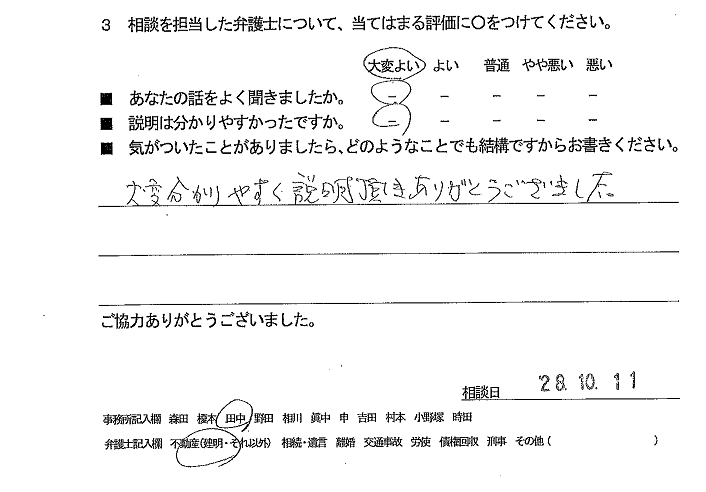 3 相談を担当した弁護士について、当てはまる評価に○をつけてください。
大変よい よい 普通 やや悪い 悪い
■ あなたの話をよく聞きましたか。 － － － － －
■ 説明は分かりやすかったですか。 － － － － －
■ 気がついたことがありましたら、どのようなことでも結構ですからお書きください。
大変分かりやすく説明頂きありがとうございました。
ご協力ありがとうございました。
相談日 '28.10.11
事務所記入欄 森田 榎本 田中 野田 相川 眞中 申 吉田 村本 小野塚 時田
弁護士記入欄 不動産(建明・それ以外) 相続・遺言 離婚 交通事故 労使 債権回収 刑事 その他( )